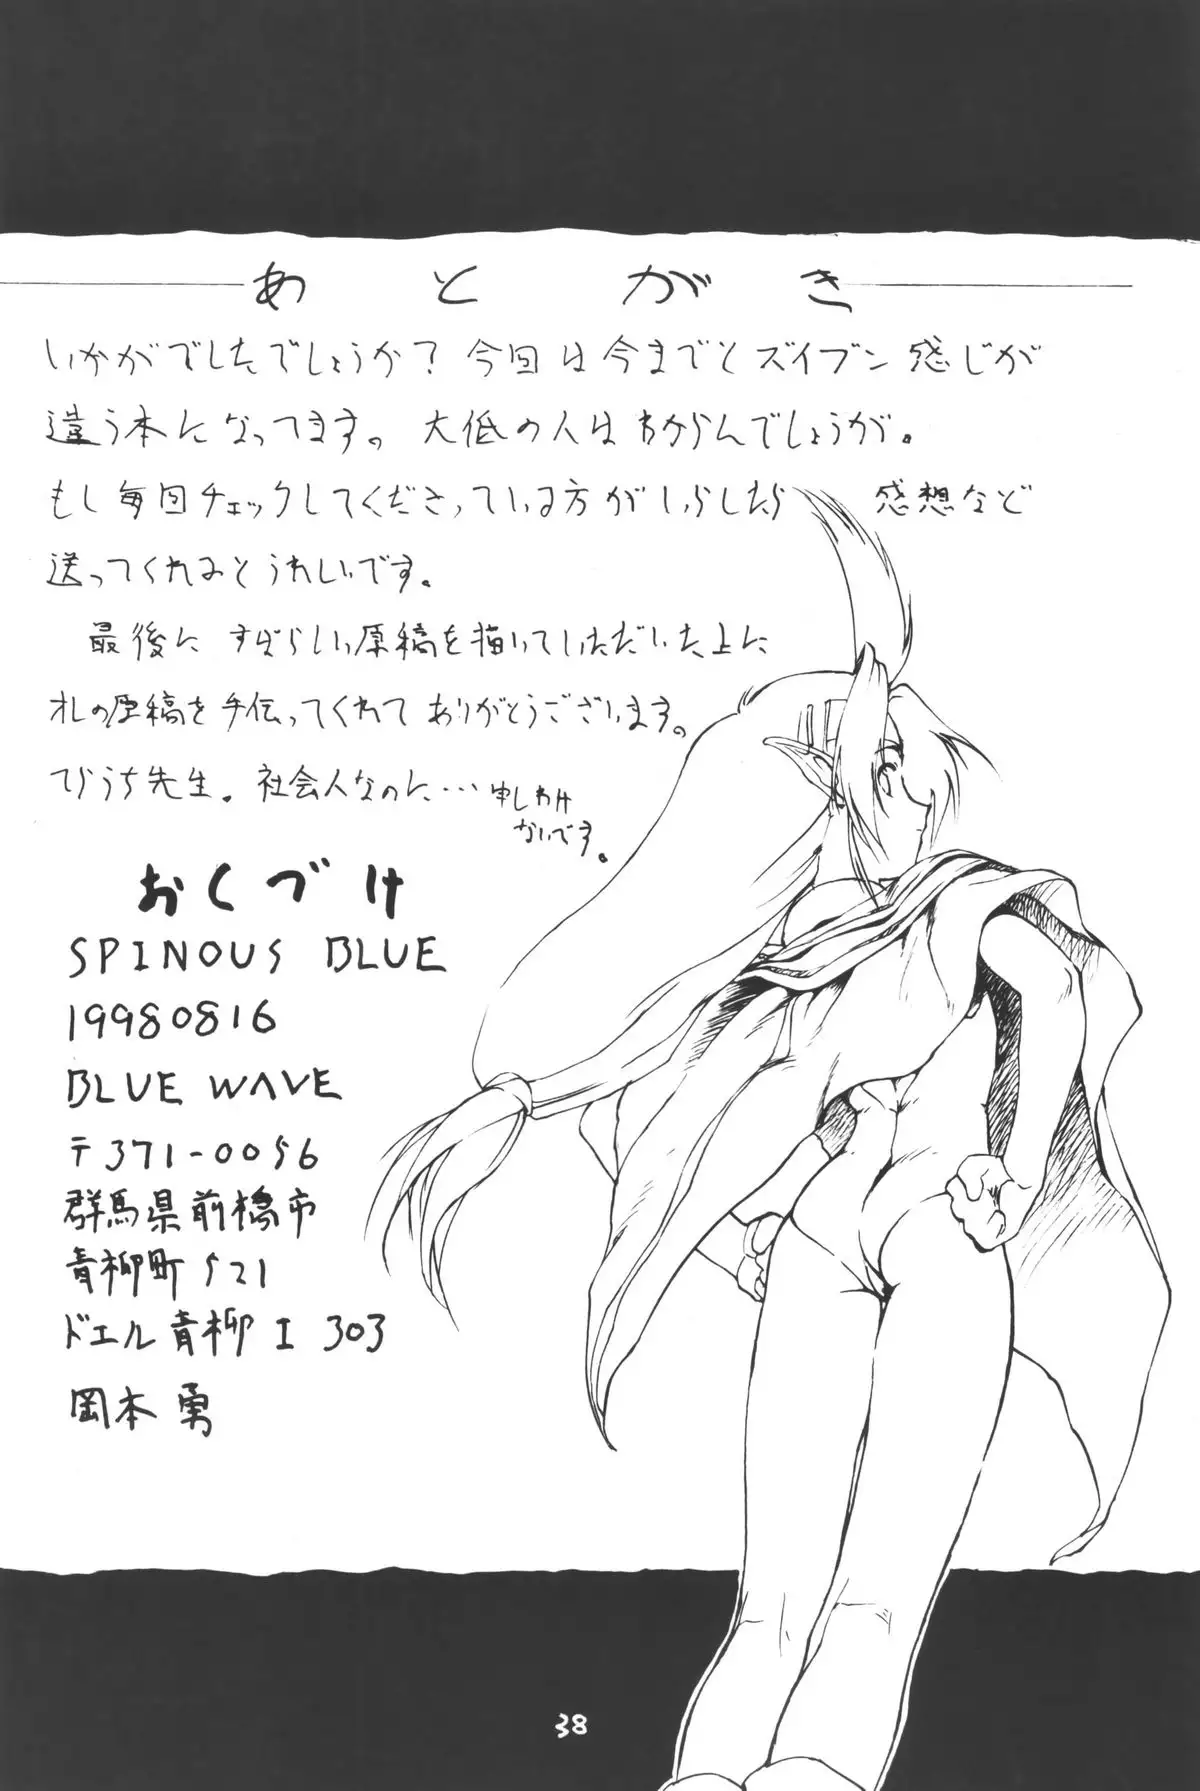 あとがき
いかがでしたでしょうか？今回は今までとズイブン感じが
違う本になってます。大低の人はわからんでしょうが。
もし毎回チェックしてくださっている方がいらしたら 感想など
送ってくれるとうれしいです。
最後に すばらしい原稿を描いていただいた上に
オレの原稿を手伝ってくれてありがとうございます。
てらうち先生。社会人なのに…申しわけ
ないです。
おくづけ
SPINOUS BLUE
19980816
BLUE WAVE
〒371-0056
群馬県前橋市
青柳町521
ドエル青柳I 303
岡本 勇
38